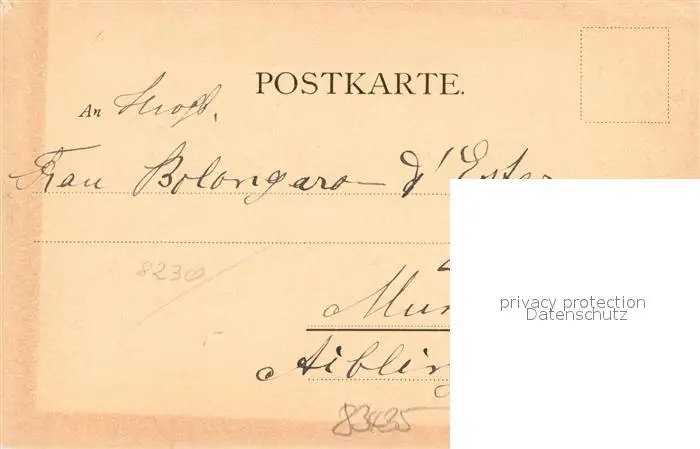 POSTKARTE.
An
Frau Bolongaro d'Ester
8230
Mun
Aibling
83435
privacy protection
Datenschutz